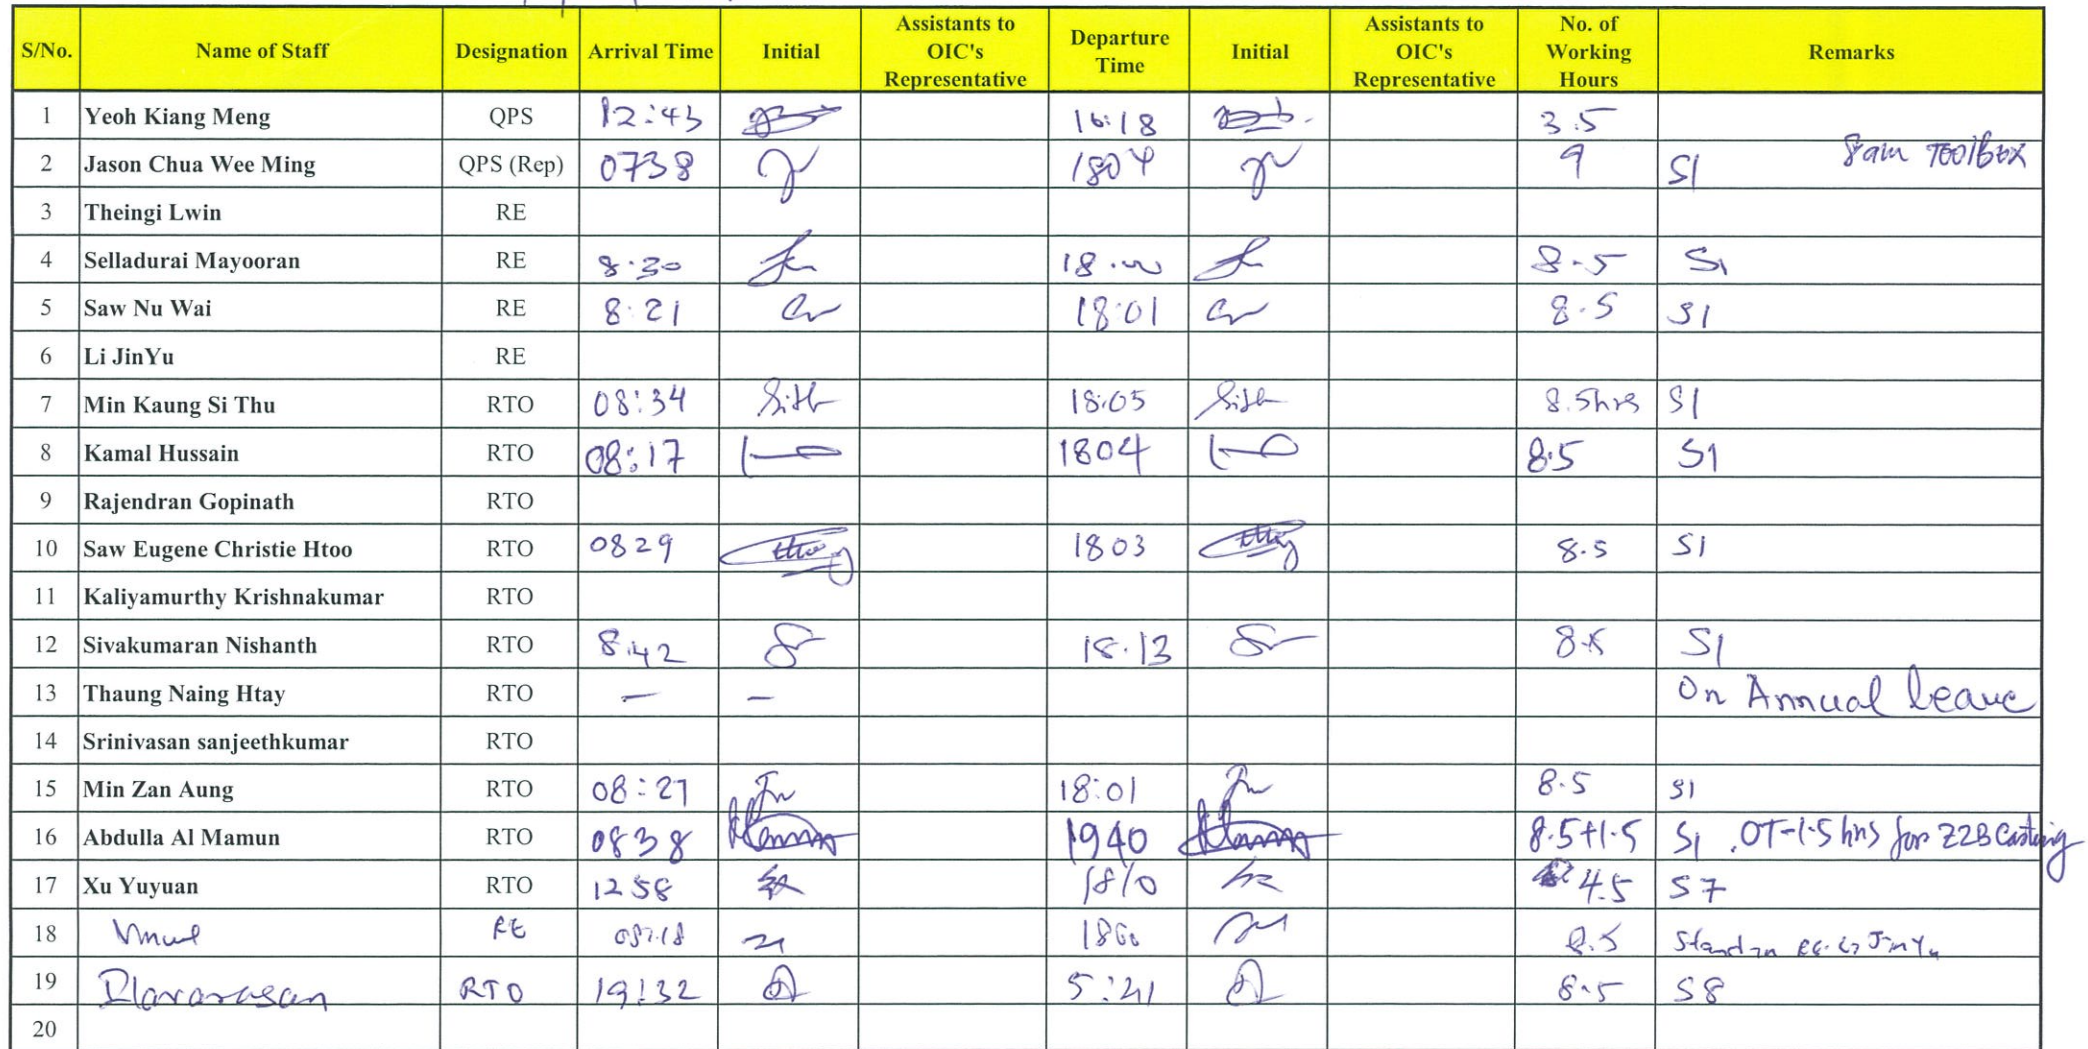 S/No. Name of Staff Designation Arrival Time Initial Assistants to OIC's Representative Departure Time Initial Assistants to OIC's Representative No. of Working Hours Remarks
1 Yeoh Kiang Meng QPS 12:43 16:18 3.5
2 Jason Chua Wee Ming QPS (Rep) 0738 1804 9 S1 8am Toolbox
3 Theingi Lwin RE
4 Selladurai Mayooran RE 8.30 18.00 8.5 S1
5 Saw Nu Wai RE 8:21 18:01 8.5 S1
6 Li JinYu RE
7 Min Kaung Si Thu RTO 08:34 Sith 18:05 Sith 8.5hrs S1
8 Kamal Hussain RTO 08:17 1804 8.5 S1
9 Rajendran Gopinath RTO
10 Saw Eugene Christie Htoo RTO 0829 1803 8.5 S1
11 Kaliyamurthy Krishnakumar RTO
12 Sivakumaran Nishanth RTO 8.42 18.13 8.5 S1
13 Thaung Naing Htay RTO — — On Annual leave
14 Srinivasan sanjeethkumar RTO
15 Min Zan Aung RTO 08:27 18:01 8.5 S1
16 Abdulla Al Mamun RTO 0838 1940 8.5+1.5 S1 .OT-1.5 hrs for Z2B Casting
17 Xu Yuyuan RTO 1258 1810 4.5 S7
18 RE 8.5 Stand in RE JinYu
19 Ilavarasan RTO 19:32 5:41 8.5 S8
20